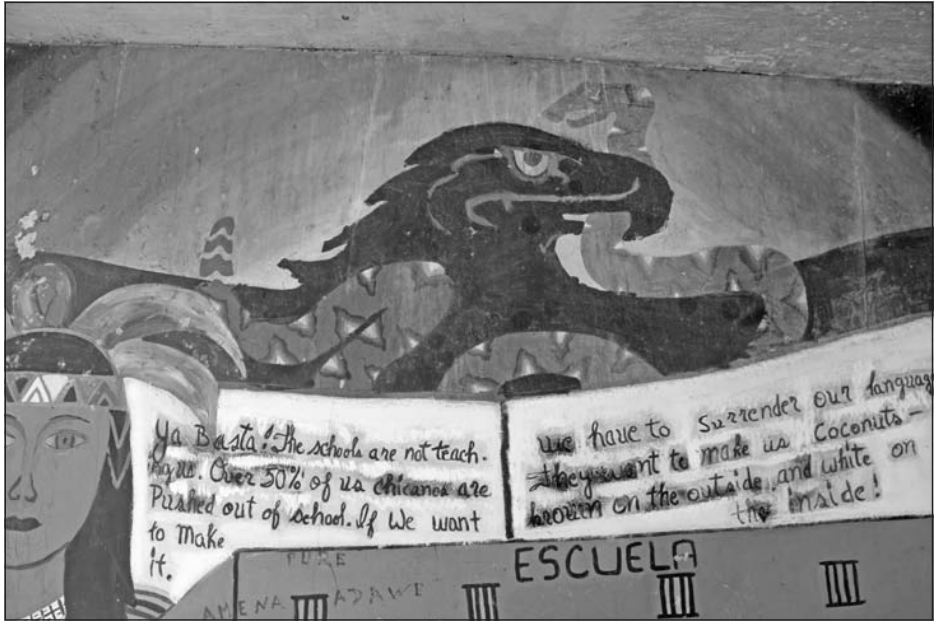 Ya Basta! The schools are not teach-
ing us. Over 50% of us chicanos are
Pushed out of school. If We want
to Make
it.
we have to Surrender our language
They want to make us Coconuts—
brown on the outside and white on
the inside!
ESCUELA
PURE
AMENA ADAWE